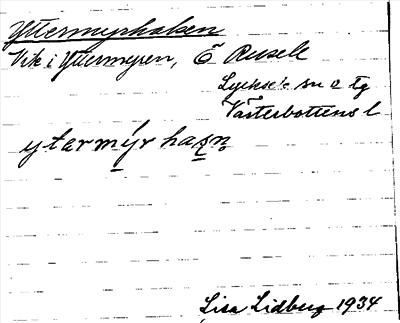 Yttermyrhaken
Vik i Yttermyren, Ö Rusele
Lycksele sn o tg
Västerbottens l
ytermýrhakn̥
Lisa Lidberg 1934